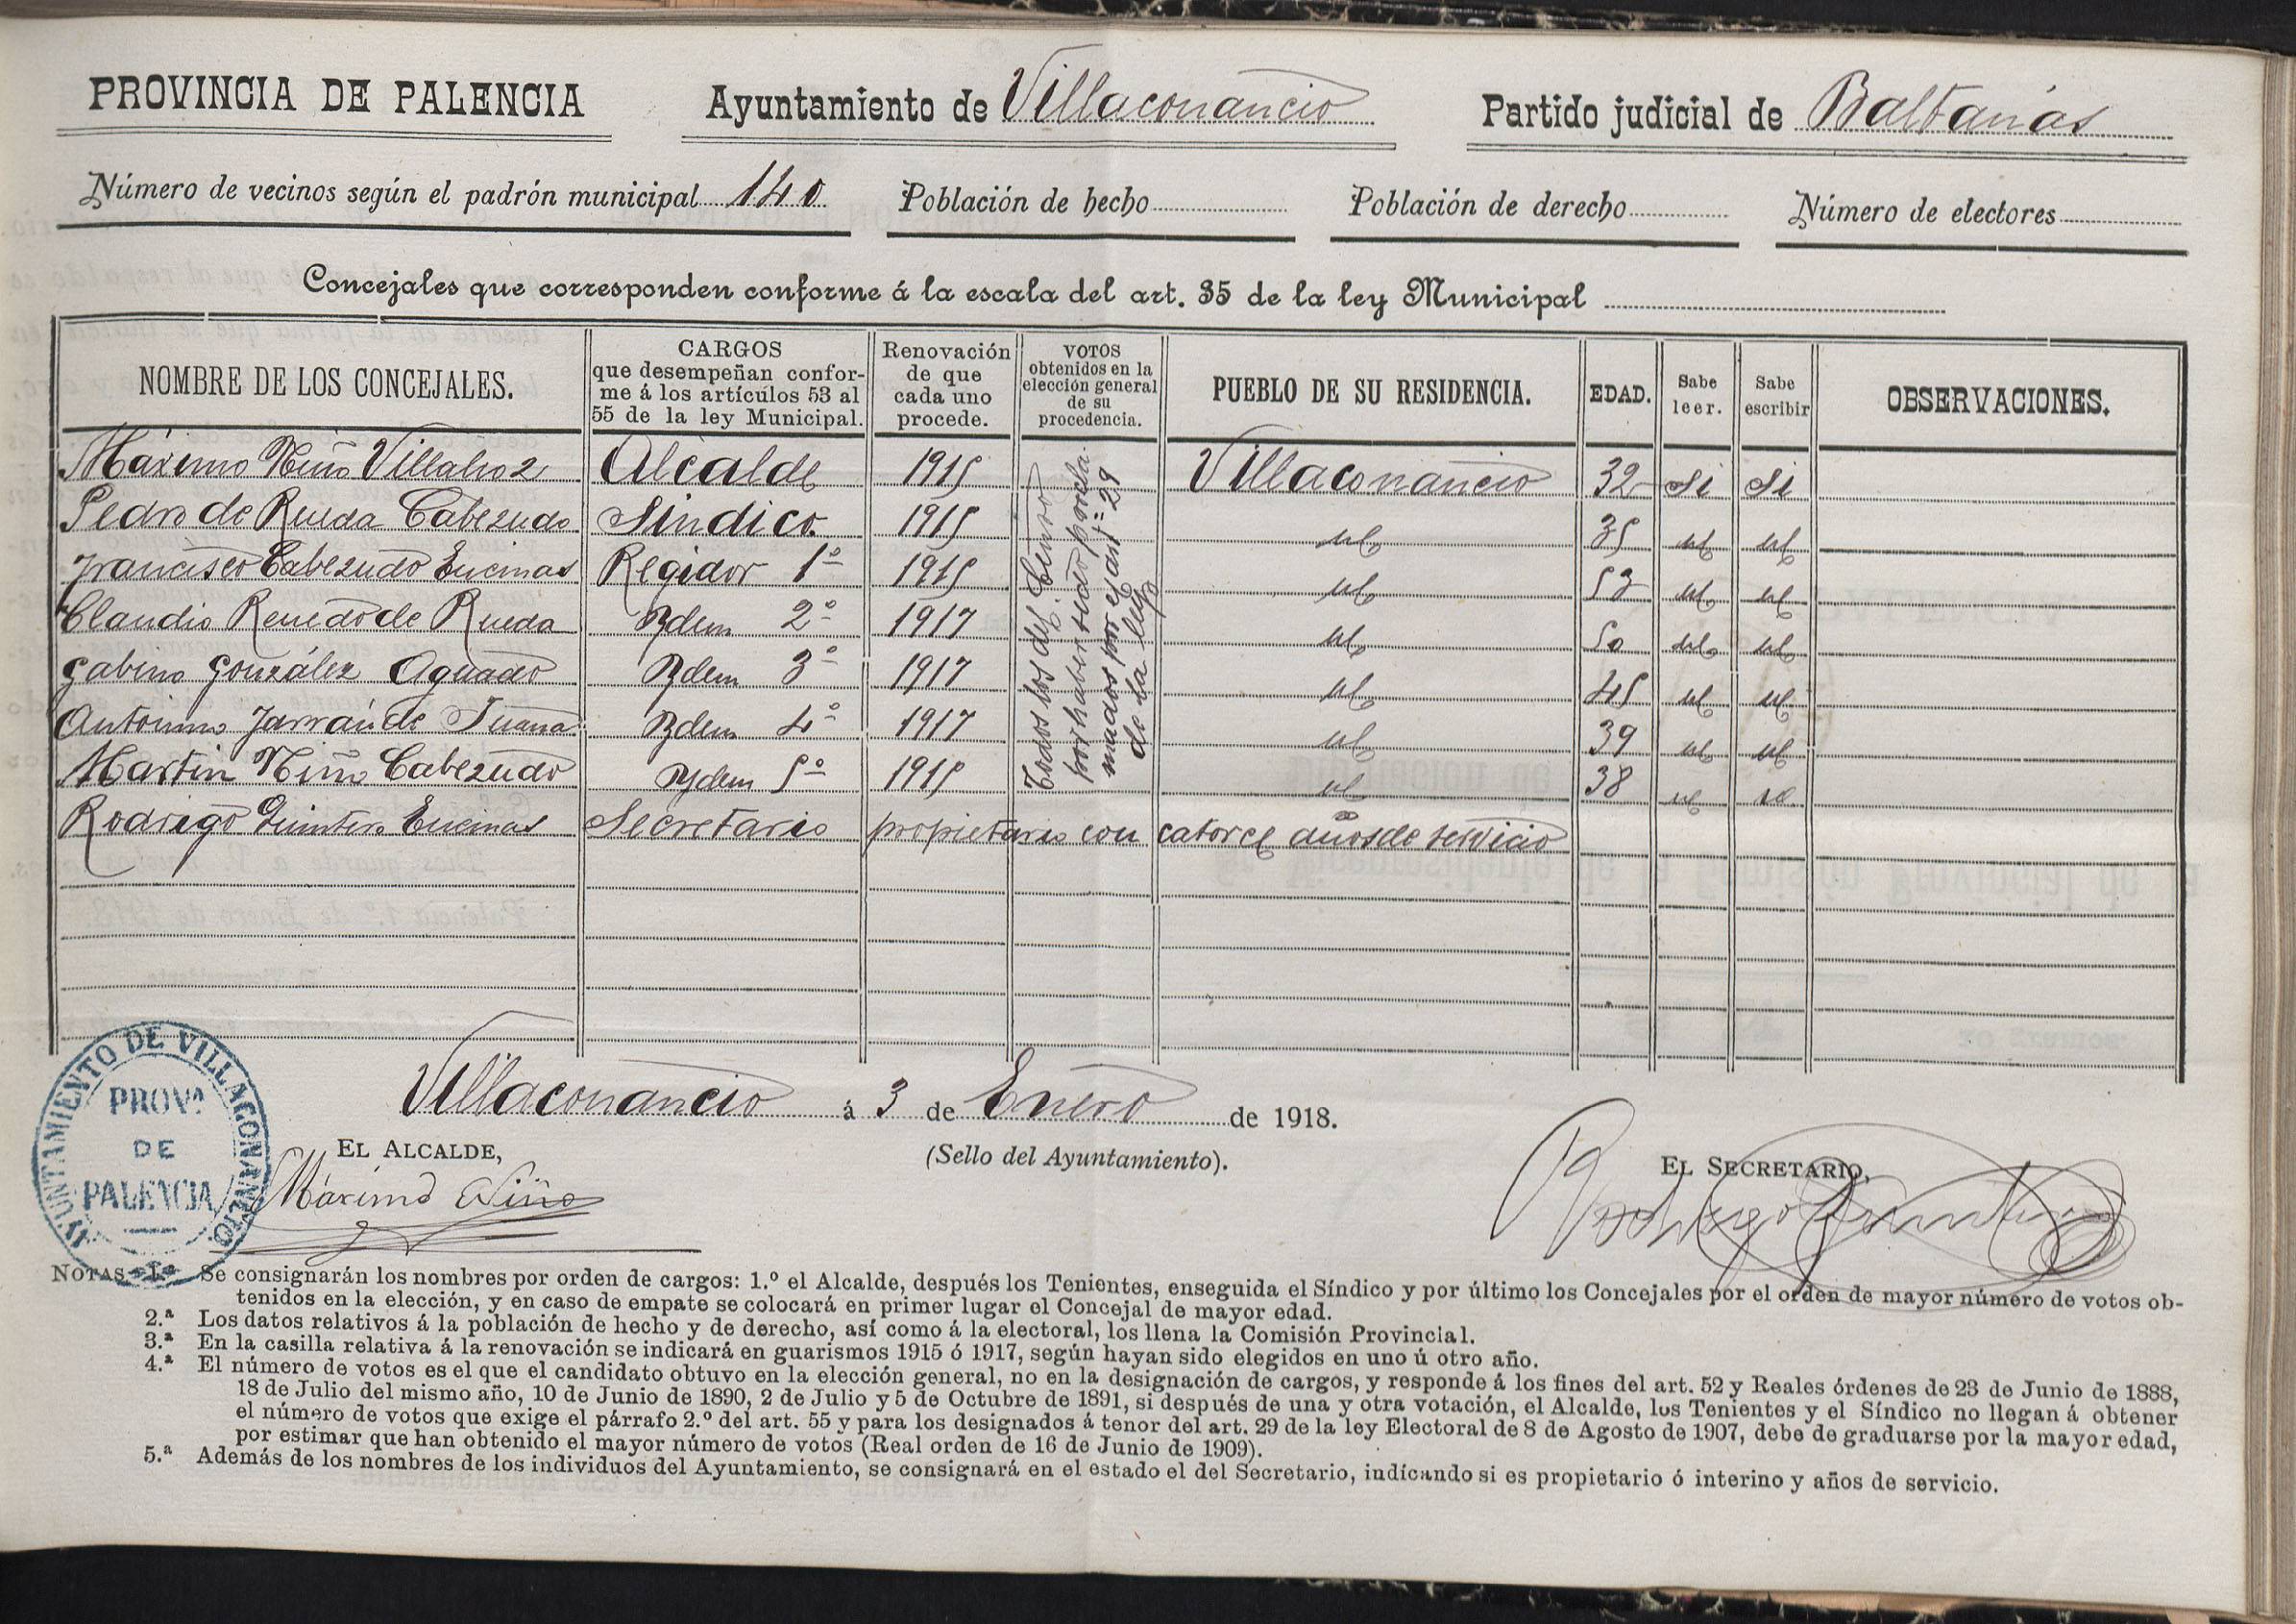 PROVINCIA DE PALENCIA Ayuntamiento de Villaconancio Partido judicial de Baltanás
Número de vecinos según el padrón municipal 140 Población de hecho Población de derecho Número de electores
Concejales que corresponden conforme á la escala del art. 35 de la ley Municipal
NOMBRE DE LOS CONCEJALES. CARGOS que desempeñan conforme á los artículos 53 al 55 de la ley Municipal. Renovación de que cada uno procede. VOTOS obtenidos en la elección general de su procedencia. PUEBLO DE SU RESIDENCIA. EDAD. Sabe leer. Sabe escribir OBSERVACIONES.
Máximo Niño Villahoz Alcalde 1915 Villaconancio 32 Si Si
Pedro de Rueda Cabezudo Síndico. 1915 id 35 id id
Francisco Cabezudo Encinas Regidor 1º 1915 id 53 id id
Claudio Renedo de Rueda Ydem 2º 1917 id 50 id id
Gabino González Aguado Ydem 3º 1917 id 45 id id
Antonino Jarrain de Juana Ydem 4º 1917 id 39 id id
Martin Niño Cabezudo Ydem 5º 1915 id 38 id id
Todos los del Censo
por haber sido procla-
mados por el art º 29
de la ley
Rodrigo Quintero Encinas Secretario propietario con catorce años de servicio
Villaconancio á 3 de Enero de 1918.
EL ALCALDE, (Sello del Ayuntamiento). EL SECRETARIO,
Máximo Niño Rodrigo Quintero
AYUNTAMIENTO DE VILLACONANCIO
PROVª
DE
PALENCIA
NOTAS 1.ª Se consignarán los nombres por orden de cargos: 1.º el Alcalde, después los Tenientes, enseguida el Síndico y por último los Concejales por el orden de mayor número de votos ob-
tenidos en la elección, y en caso de empate se colocará en primer lugar el Concejal de mayor edad.
2.ª Los datos relativos á la población de hecho y de derecho, así como á la electoral, los llena la Comisión Provincial.
3.ª En la casilla relativa á la renovación se indicará en guarismos 1915 ó 1917, según hayan sido elegidos en uno ú otro año.
4.ª El número de votos es el que el candidato obtuvo en la elección general, no en la designación de cargos, y responde á los fines del art. 52 y Reales órdenes de 23 de Junio de 1888,
18 de Julio del mismo año, 10 de Junio de 1890, 2 de Julio y 5 de Octubre de 1891, si después de una y otra votación, el Alcalde, los Tenientes y el Síndico no llegan á obtener
el número de votos que exige el párrafo 2.º del art. 55 y para los designados á tenor del art. 29 de la ley Electoral de 8 de Agosto de 1907, debe de graduarse por la mayor edad,
por estimar que han obtenido el mayor número de votos (Real orden de 16 de Junio de 1909).
5.ª Además de los nombres de los individuos del Ayuntamiento, se consignará en el estado el del Secretario, indicando si es propietario ó interino y años de servicio.